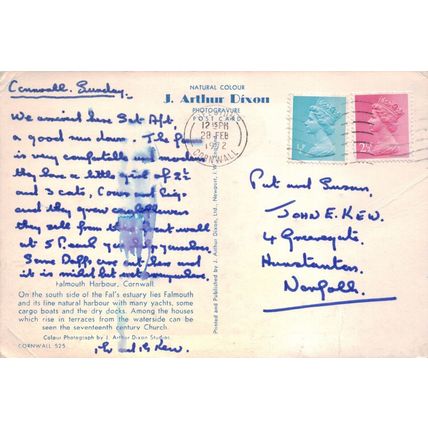 NATURAL COLOUR
J. Arthur Dixon
PHOTOGRAVURE
POST CARD
Cornwall. Sunday.
We arrived here Sat Aft,
a good run down. The
is very comfortable and modern
they have a little girl of 2½
and 3 cats, Cows and Pigs
and they grow
they sell from the wall
at 5P. each
Some Daffs are out here and
it is mild but wet
12 PM
28 FEB
1972
CORNWALL
½P
2½P
Pat and Susan,
JOHN E. KEW.
4
Hunstanton,
Norfolk.
Printed and Published by J. Arthur Dixon Ltd., Newport, I.W.
Falmouth Harbour, Cornwall.
On the south side of the Fal's estuary lies Falmouth
and its fine natural harbour with many yachts, some
cargo boats and the dry docks. Among the houses
which rise in terraces from the waterside can be
seen the seventeenth century Church.
Colour Photograph by J. Arthur Dixon Studios.
CORNWALL 525
Kew.